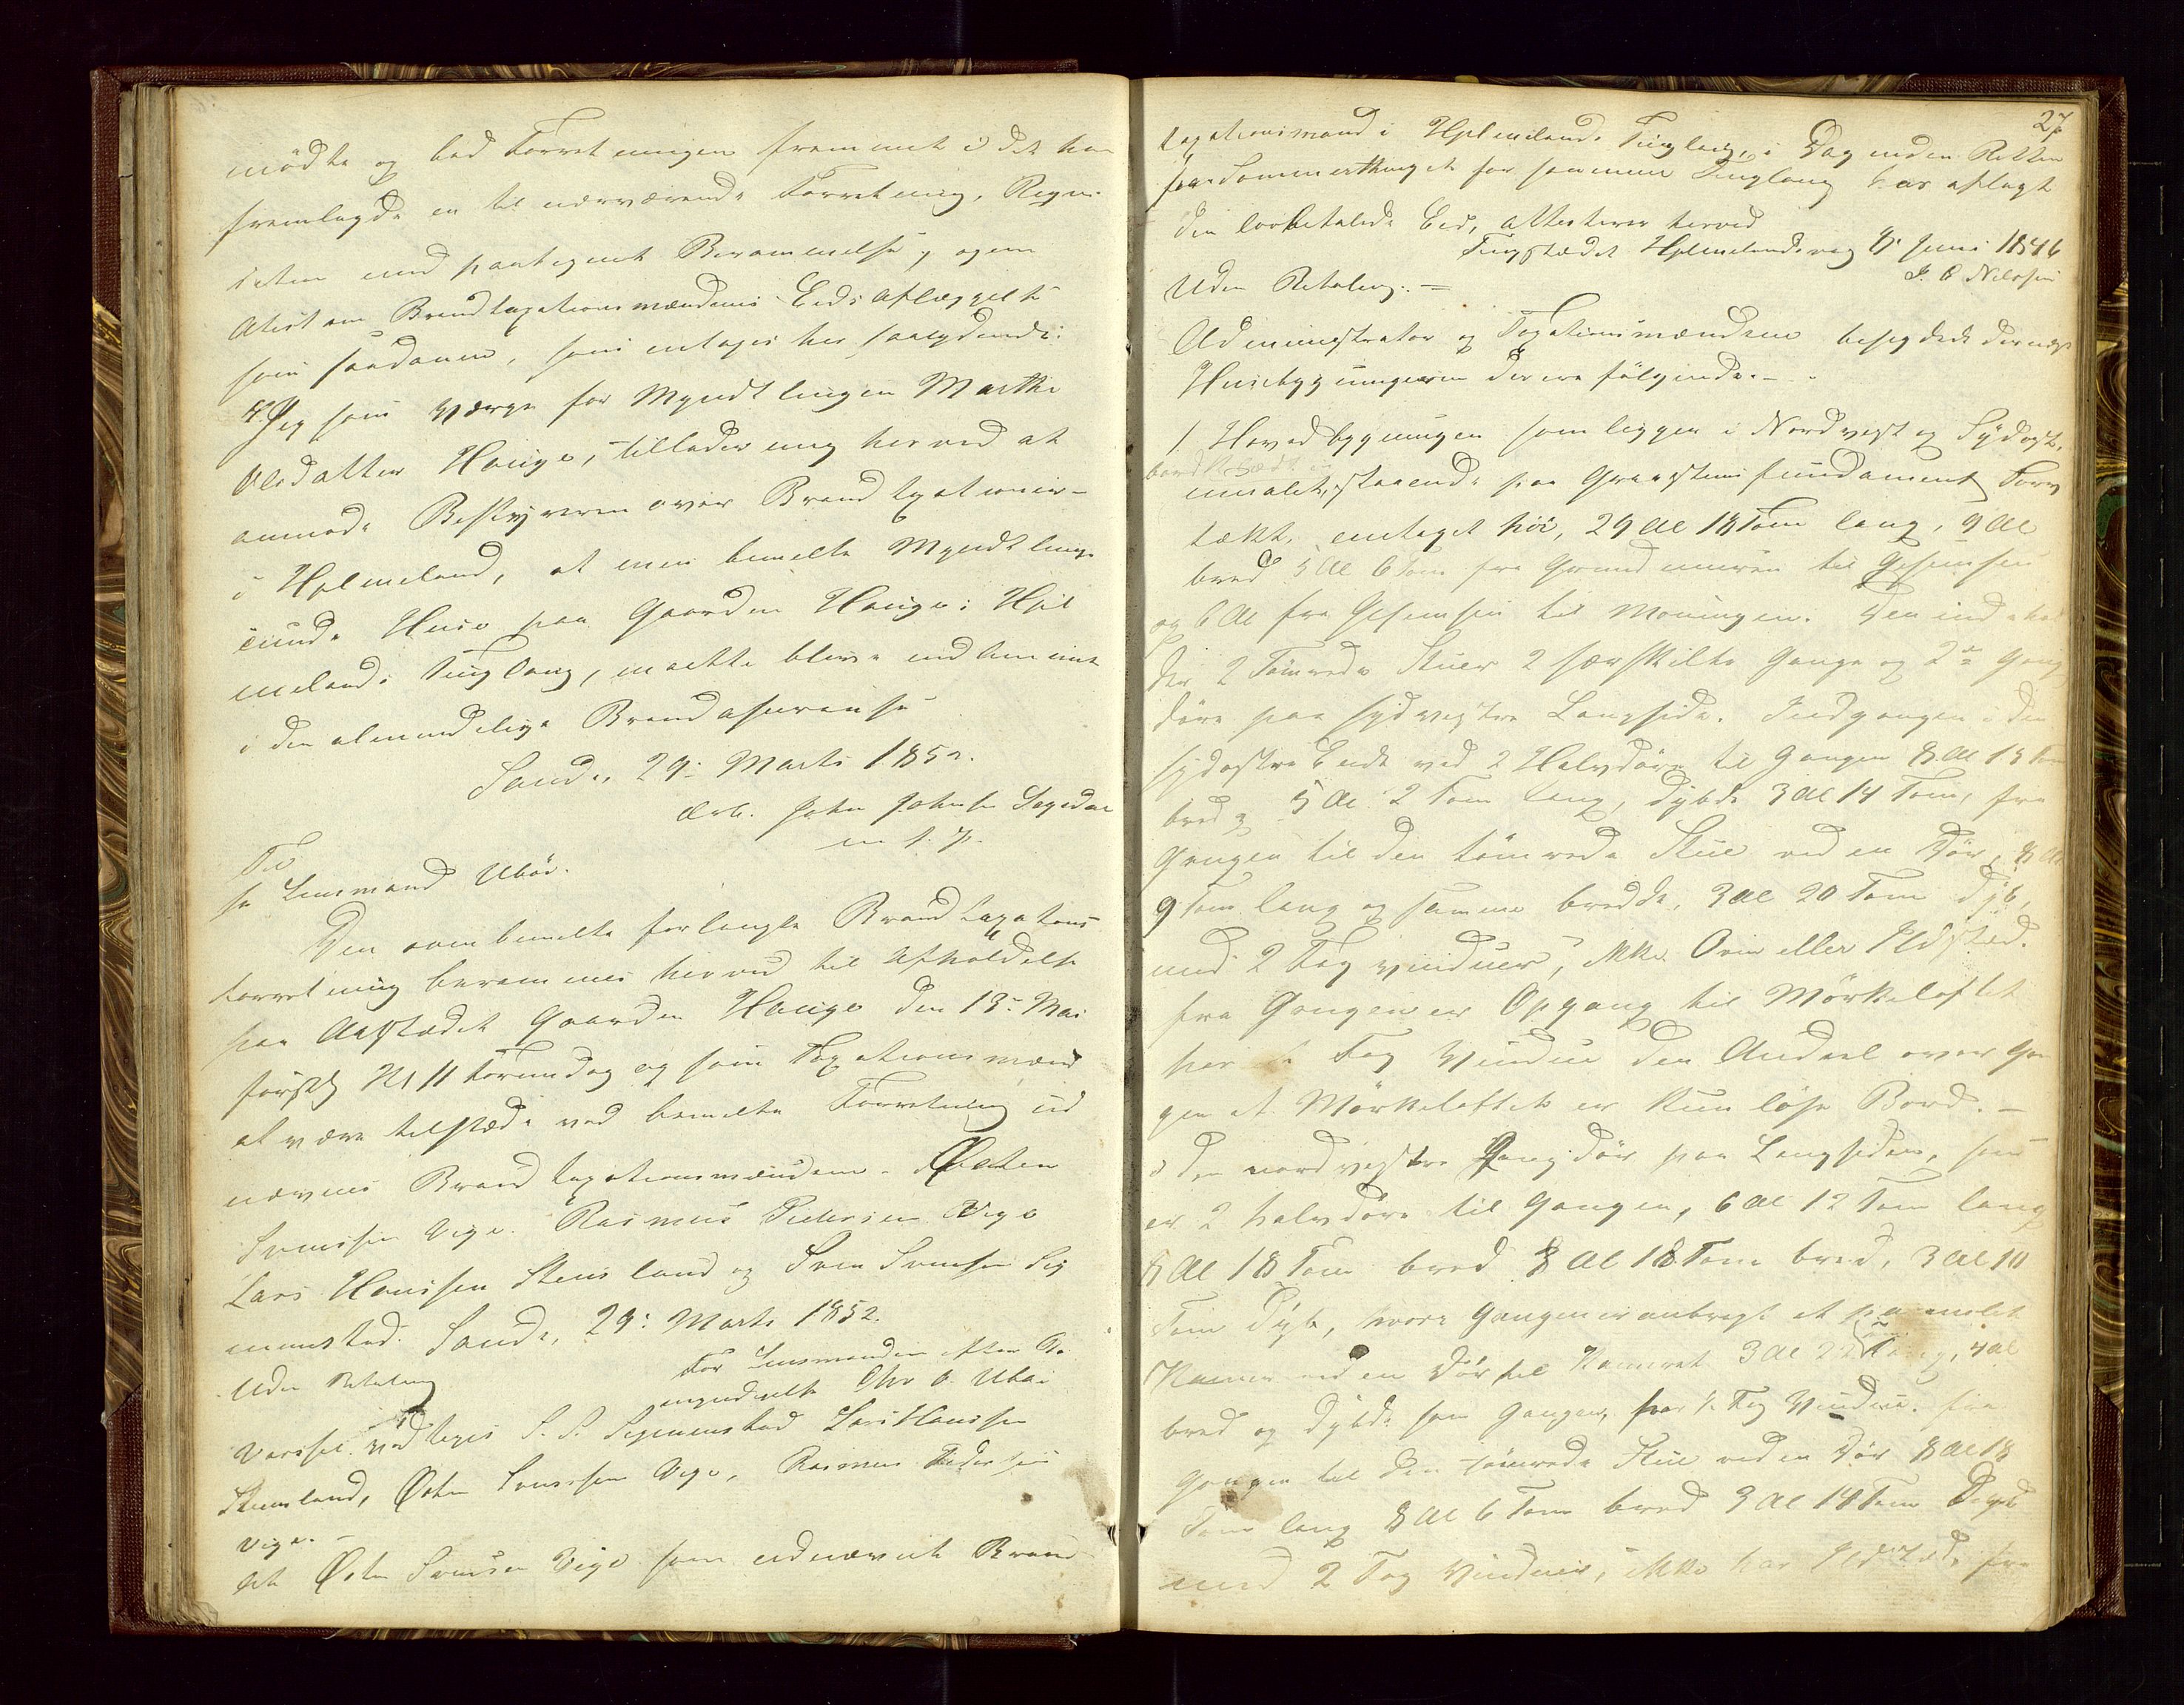 mödte og bad Forretningen fremmet i det han
fremlagde en til nærværende Forretning, Reqvi-
sition med paategnet Berammelse, og en
Atest om Brandtaxationsmændenes Eds Aflæggelse
som saadanne, som intages her saalydende:
Jeg som Værge for Myndtlingen Marthe
Olsdatter Hauge, tillader mig herved at
anmode Bestyreren over Brandtaxationer
i Hjelmeland, at min bemelte Myndtlings
Huse paa Gaarden Hauge i Hjel
melands Tinglaug, maatte blive indlemmet
i den almindelige Brandasurense
Sand, 29: Marts 1852.
Ærb. John Johnsen Sagedal
m. f. P.
Til
Hr Lensmand Ubøe.
Den ovenbemelte forlangte Brandtaxations
forretning berammes herved til Afholdelse
paa Aastædet Gaarden Hauge den 13: Mai
førstk Kl 11 Formidag og som Taxationsmænd
at være tilstæde ved bemelte Forretning ud
nævnes Brandtaxationsmændene Østen
Svensen Vige. Rasmus Pedersen Vige
Lars Hansen Steinsland og Sven Svensen Sig
munstad. Sand, 29: Marts 1852.
Uden Betaling For Lensmanden efter Be
myndigelse Chr O. Ubøe
Varsel vedtages S. S. Sigmunstad Lars Hansen
Steinsland, Østen Svensen Vige, Rasmus Pedersen
Vige.
At Østen Svensen Vige som udnævnt Brand
27
taxationsmand i Hjelmelands Tinglaug, i Dag inden Retten
paa Sommerthinget for samme Tinglaug har aflagt
den lovbefalede Eed, attesteres herved
Tingstædet Hjelmelandsvaag 8: Juni 1846
J. C Nilssen
Uden Betaling. =
Administrator og Taxationsmændene besigtede dernæst
Huusbygningerne der ere følgende. -
1. Hovedbygningen som ligger i Nordvest og Sydost,
bordklædt og
umalet, staaende paa Graastens fundament Torv
tækt, en etage höi, 29 Al 18 Tom lang, 9 Al
bred 5 Al 6 Tom fra Grundmuren til Gesimsen
og 6 Al fra Gesimsen til Möningen. Den inde hol
der 2 Tömrede Stuer 2 særskilte Gange og 2de Gang
döre paa sydvestre Langside. Indgangen i den
sydostre Ende ved 2 Halvdöre til Gangen 8 Al 18 Tom
bred og 5 Al 2 Tom lang, dybde 3 Al 14 Tom, fra
Gangen til den tömrede Stue ved en Dör, 8 Al
9 Tom lang og samme bredde, 3 Al 20 Tom dyb,
med 2 Fag vinduer, ikke Ovn eller Ildsted.
fra Gangen er Opgang til Mörkeloftet
har 1 Fag Vindue den Andeel over Gan
gen at Mörkeloftet er kun löse Bord. -
I den nordvestre Gangdör paa Langsiden, som
er 2 halvdöre til Gangen, 6 Al 12 Tom lang
8 Al 18 Tom bred 8 Al 18 Tom bred, 3 Al 10
Tom dyb, hvor i Gangen er anbragt et panelet
Kammer ved en Dör til Kammeret 3 Al 22 Tom lang, 4 Al
bred og dybde som Gangen, har 1 Fag Vindue. fra
Gangen til den tömrede Stue ved en Dör 8 Al 18
Tom lang 8 Al 6 Tom bred 3 Al 14 Tom Dyb
med 2 Fag Vinduer, ikke har Ildsted, fra